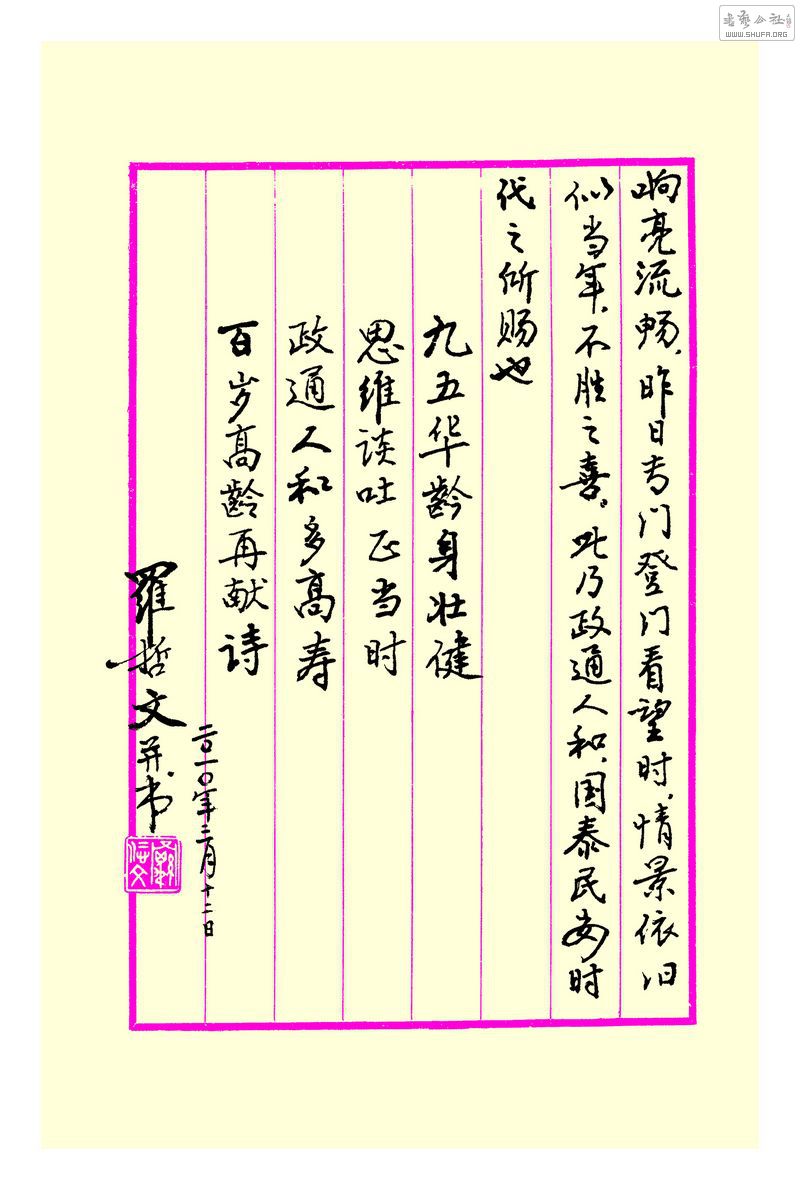 响亮流畅，昨日专门登门看望时，情景依旧
似当年，不胜之喜。此乃政通人和，国泰民安时
代之所赐也
九五华龄身壮健
思维谈吐正当时
政通人和多高寿
百岁高龄再献诗
二〇一〇年三月十二日
羅哲文并书
WWW.SHUFA.ORG